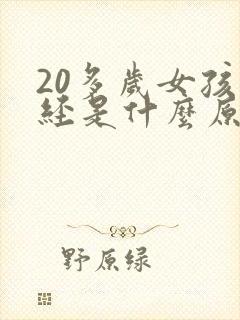 20多歲女孩
經是什麼原
野原绿